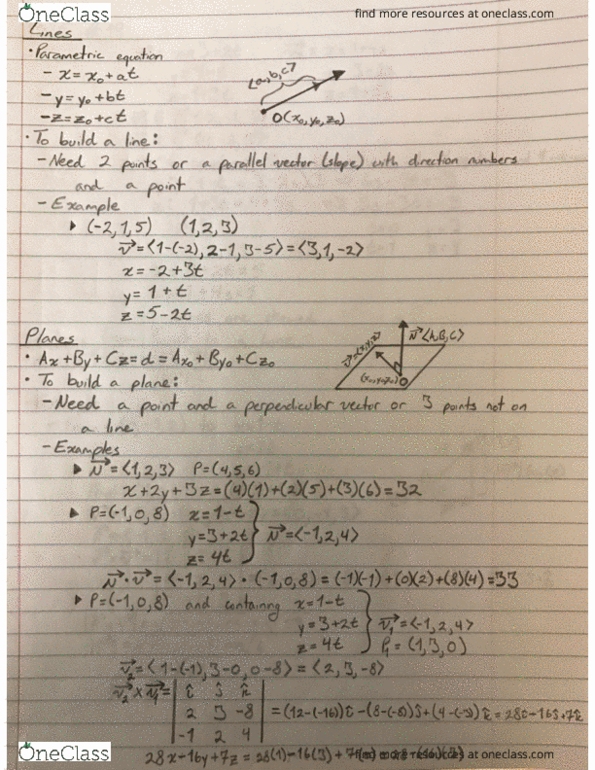 OneClass
find more resources at oneclass.com
Lines
• Parametric equation
- x = x₀ + at
- y = y₀ + bt
- z = z₀ + ct
<a,b,c>
O(x₀, y₀, z₀)
• To build a line:
- Need 2 points or a parallel vector (slope) with direction numbers
and a point
- Example
▸ (-2,1,5) (1,2,3)
v⃗ = <1-(-2), 2-1, 3-5> = <3,1,-2>
x = -2+3t
y = 1 + t
z = 5-2t
Planes
N⃗ <A,B,C>
v⃗ = <x,y,z>
(x₀,y₀,z₀)
• Ax + By + Cz = d = Ax₀ + By₀ + Cz₀
• To build a plane:
- Need a point and a perpendicular vector or 3 points not on
a line
- Examples
▸ N⃗ = <1,2,3> P = (4,5,6)
x + 2y + 3z = (4)(1)+(2)(5)+(3)(6) = 32
▸ P = (-1,0,8) x = 1-t
y = 3+2t N⃗ = <-1,2,4>
z = 4t
N⃗ · v⃗ = <-1,2,4> · (-1,0,8) = (-1)(-1) + (0)(2) + (8)(4) = 33
▸ P = (-1,0,8) and containing x = 1-t
y = 3+2t v₁⃗ = <-1,2,4>
z = 4t P₁ = (1,3,0)
v₂⃗ = <1-(-1), 3-0, 0-8> = <2,3,-8>
v₂⃗ × v₁⃗ = | î ĵ k̂ |
| 2 3 -8 | = (12-(-16))î - (8-(-8))ĵ + (4-(-3))k̂ = 28î-16ĵ+7k̂
| -1 2 4 |
28x - 16y + 7z = 28(1) - 16(3) +
OneClass
find more resources at oneclass.com